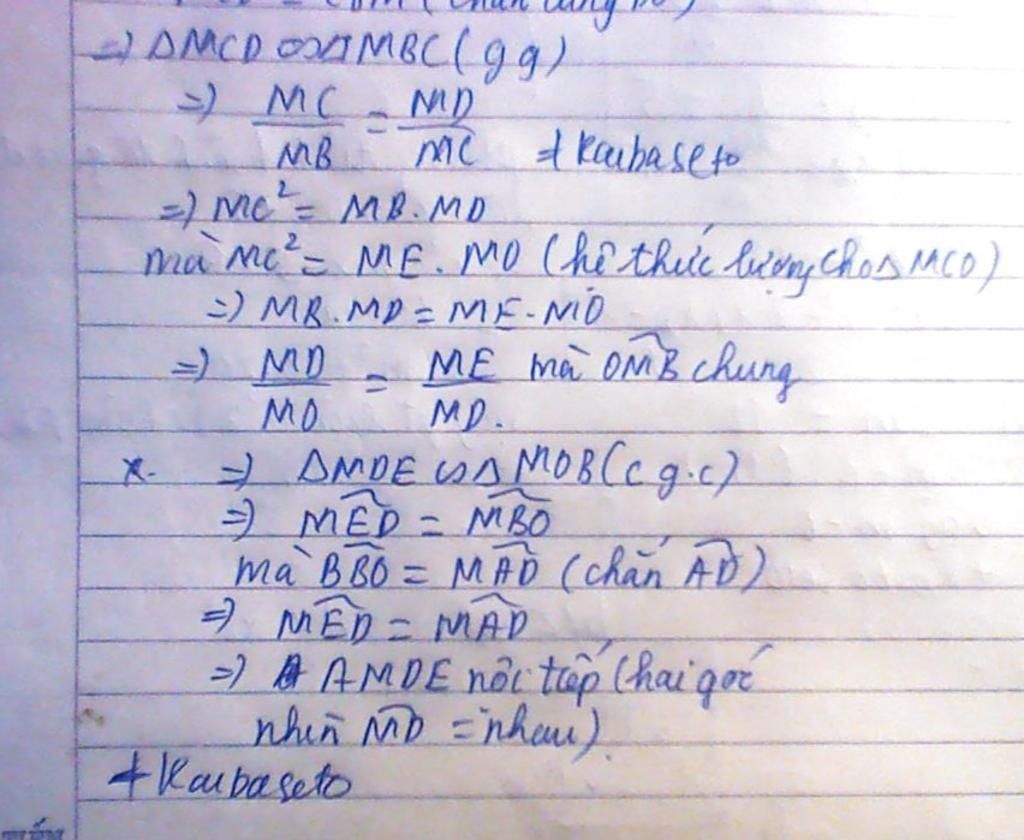 = CBM (chắn cung
=) ΔMCD ∽ ΔMBC (gg)
=) MC/MB = MD/MC + Kaibaseto
=) MC² = MB.MD
mà MC² = ME.MO (hệ thức lượng cho Δ MCO)
=) MB.MD = ME.MO
=) MD/MO = ME/MD. mà OMB chung
*. =) ΔMDE ∽ Δ MOB (c g.c)
=) MED = MBO
mà BBO = MAD (chắn AD)
=) MED = MAD
=) AMDE nội tiếp (hai góc
nhìn MD = nhau)
+ Kaibaseto